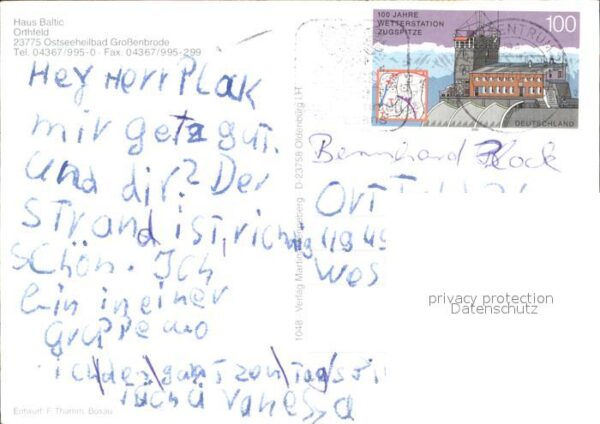 Haus Baltic
Orthfeld
23775 Ostseeheilbad Großenbrode
Tel. 04367/995-0 · Fax. 04367/995-299
100 JAHRE
WETTERSTATION
ZUGSPITZE
100
DEUTSCHLAND
Hey Herr Plak
mir getz gut.
und dir? Der
Strand ist, richtig
schön. Ich
bin in einer
Gruppe wo
ich den gantzen Tag
Vanessa
Bernhard
Ort
privacy protection
Datenschutz
D-23758 Oldenburg i.H
1048 Verlag Martin
Entwurf: F. Thamm, Bosau